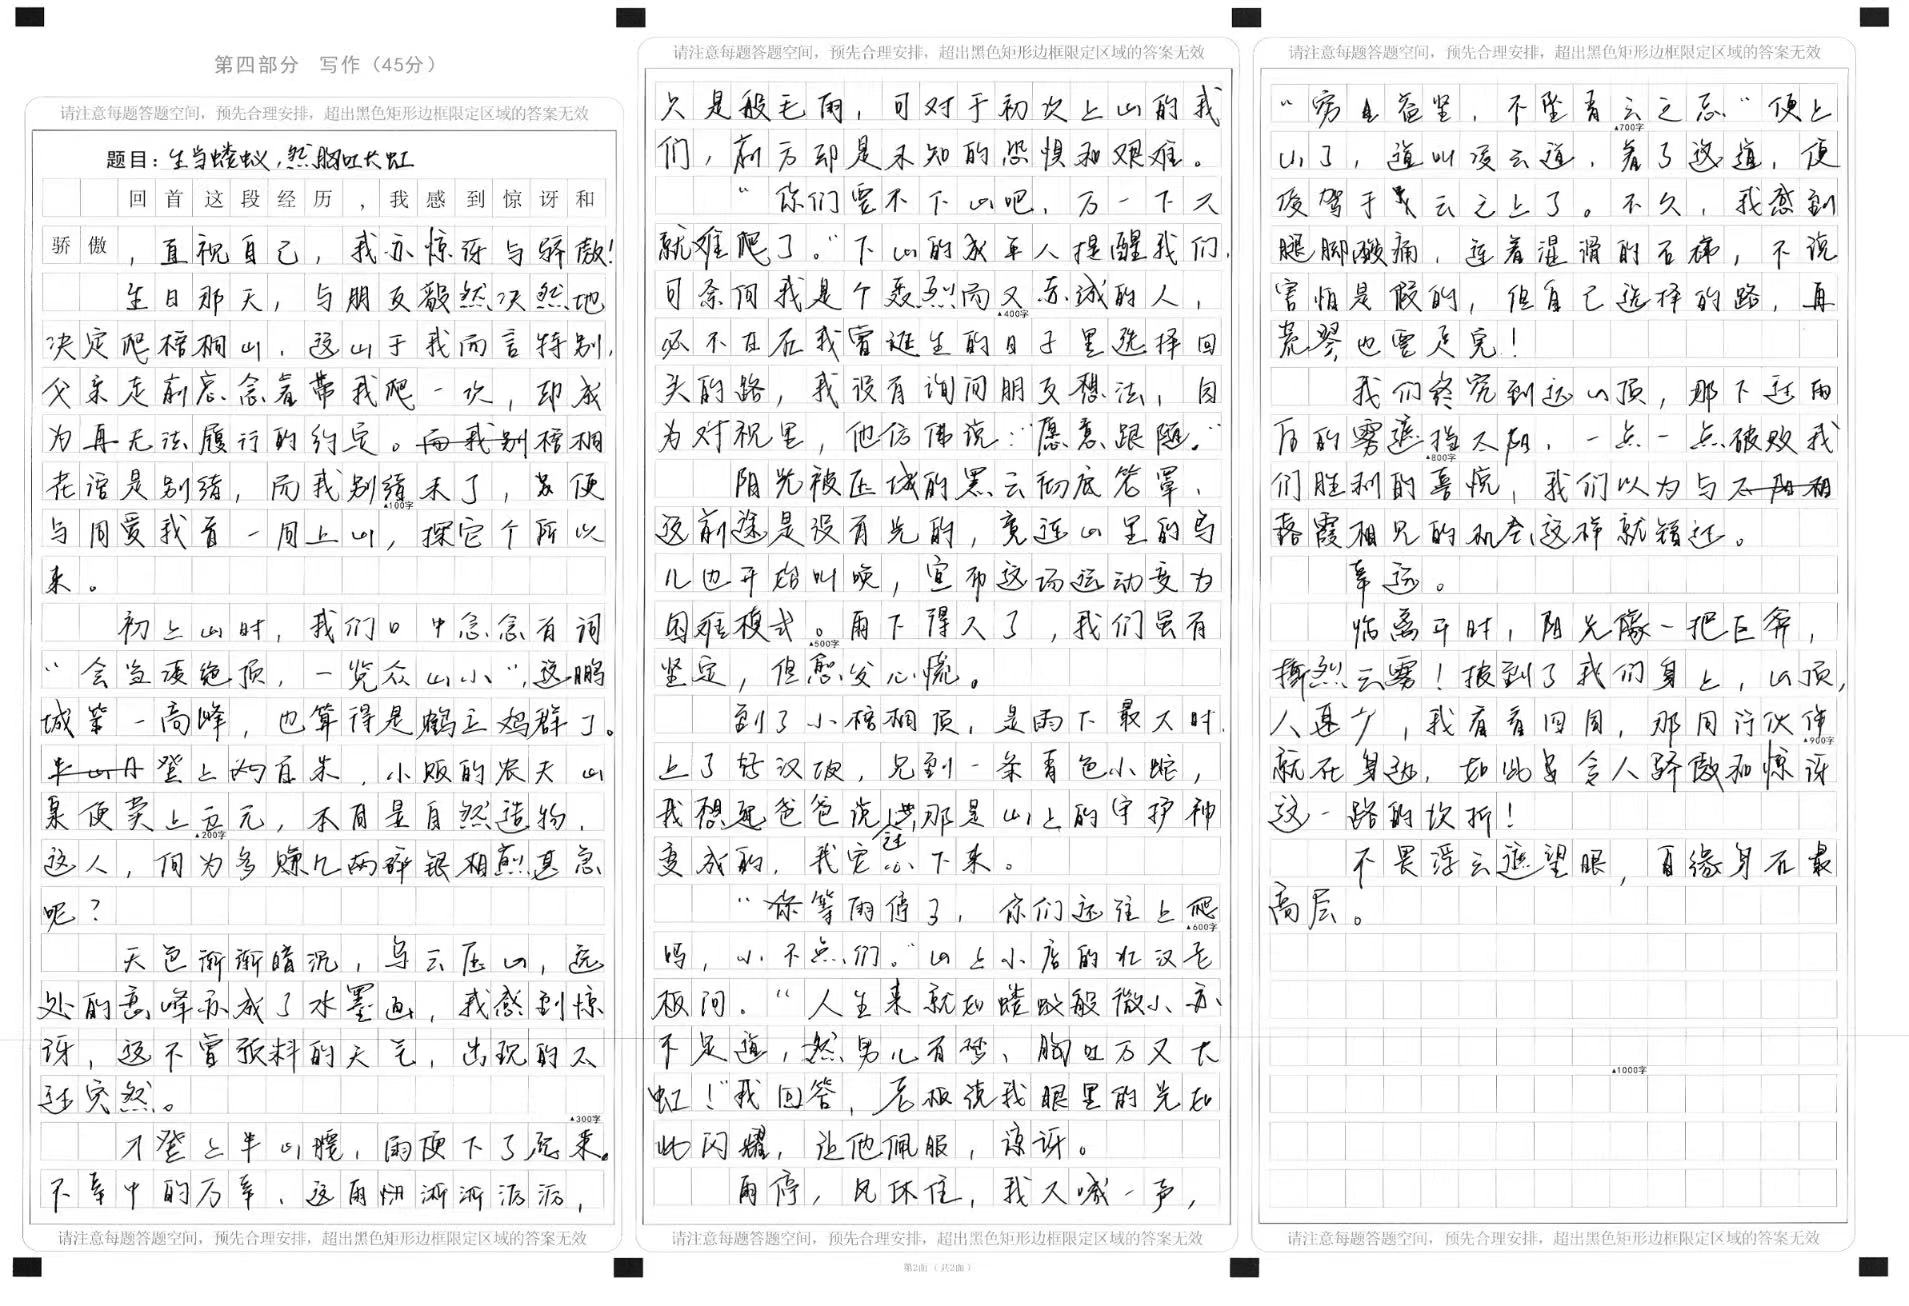 第四部分 写作（45分）
请注意每题答题空间，预先合理安排，超出黑色矩形边框限定区域的答案无效
题目：生当蝼蚁，然胸吐长虹
回首这段经历，我感到惊讶和
骄傲，直视自己，我亦惊讶与骄傲！
生日那天，与朋友毅然决然地
决定爬梧桐山，这山于我而言特别，
父亲走前总念着带我爬一次，却成
为再无法履行的约定。梧桐
花语是别绪，而我别绪未了，便
与同爱我者一同上山，探它个所以
来。
初上山时，我们口中念念有词
“会当凌绝顶，一览众山小”，这鹏
城第一高峰，也算得是鹤立鸡群了。
登上两百米，小贩的农夫山
泉便卖上五元，本自是自然造物，
这人，何为多赚几两碎银相煎甚急
呢？
天色渐渐暗沉，乌云压山，远
处的高峰亦成了水墨画，我感到惊
讶，这不曾预料的天气，出现的太
过突然。
▲100字
▲200字
▲300字
才登上半山腰，雨便下了起来。
不幸中的万幸，这雨淅淅沥沥，
请注意每题答题空间，预先合理安排，超出黑色矩形边框限定区域的答案无效
请注意每题答题空间，预先合理安排，超出黑色矩形边框限定区域的答案无效
只是般毛雨，可对于初次上山的我
们，前方却是未知的恐惧和艰难。
“你们要不下山吧，万一下大
就难爬了。”下山的成年人提醒我们，
可奈何我是个轰烈而又赤诚的人，
▲400字
必不在在我曾诞生的日子里选择回
头的路，我没有询问朋友想法，因
为对视里，他仿佛说：“愿意跟随。”
阳光被压城的黑云彻底笼罩，
这前途是没有光的，竟连山里的鸟
儿也开始叫唤，宣布这场运动变为
困难模式。雨下得久了，我们虽有
▲500字
坚定，但愈发心慌。
到了小梧桐顶，是雨下最大时，
上了好汉坡，见到一条青色小蛇，
我想起爸爸说过，那是山上的守护神
变成的，我定下来。
“等雨停了，你们还往上爬
▲600字
吗，小不点们。”山上小店的壮汉老
板问。“人生来就如蝼蚁般微小、亦
不足道，然男儿有梦、胸吐万丈长
虹！”我回答，老板说我眼里的光如
此闪耀，让他佩服，惊讶。
雨停，风休住，我大喊一声，
请注意每题答题空间，预先合理安排，超出黑色矩形边框限定区域的答案无效
第2面（共2面）
请注意每题答题空间，预先合理安排，超出黑色矩形边框限定区域的答案无效
“穷且益坚，不坠青云之志”便上
▲700字
山了，道叫凌云道，着了这道，便
凌驾于云之上了。不久，我感到
腿脚酸痛，连着湿滑的石梯，不说
害怕是假的，但自己选择的路，再
荒谬也要走完！
我们终究到达山顶，那下过雨
后的雾遮挡太阳，一点一点破败我
▲800字
们胜利的喜悦，我们以为与
落霞相见的机会这样就错过。
幸运。
临离开时，阳光像一把巨斧，
撕烈云雾！披到了我们身上，山顶，
人甚少，我看着四周，那同行伙伴
▲900字
就在身边，如此多令人骄傲和惊讶
这一路的坎折！
不畏浮云遮望眼，自缘身在最
高层。
▲1000字
请注意每题答题空间，预先合理安排，超出黑色矩形边框限定区域的答案无效